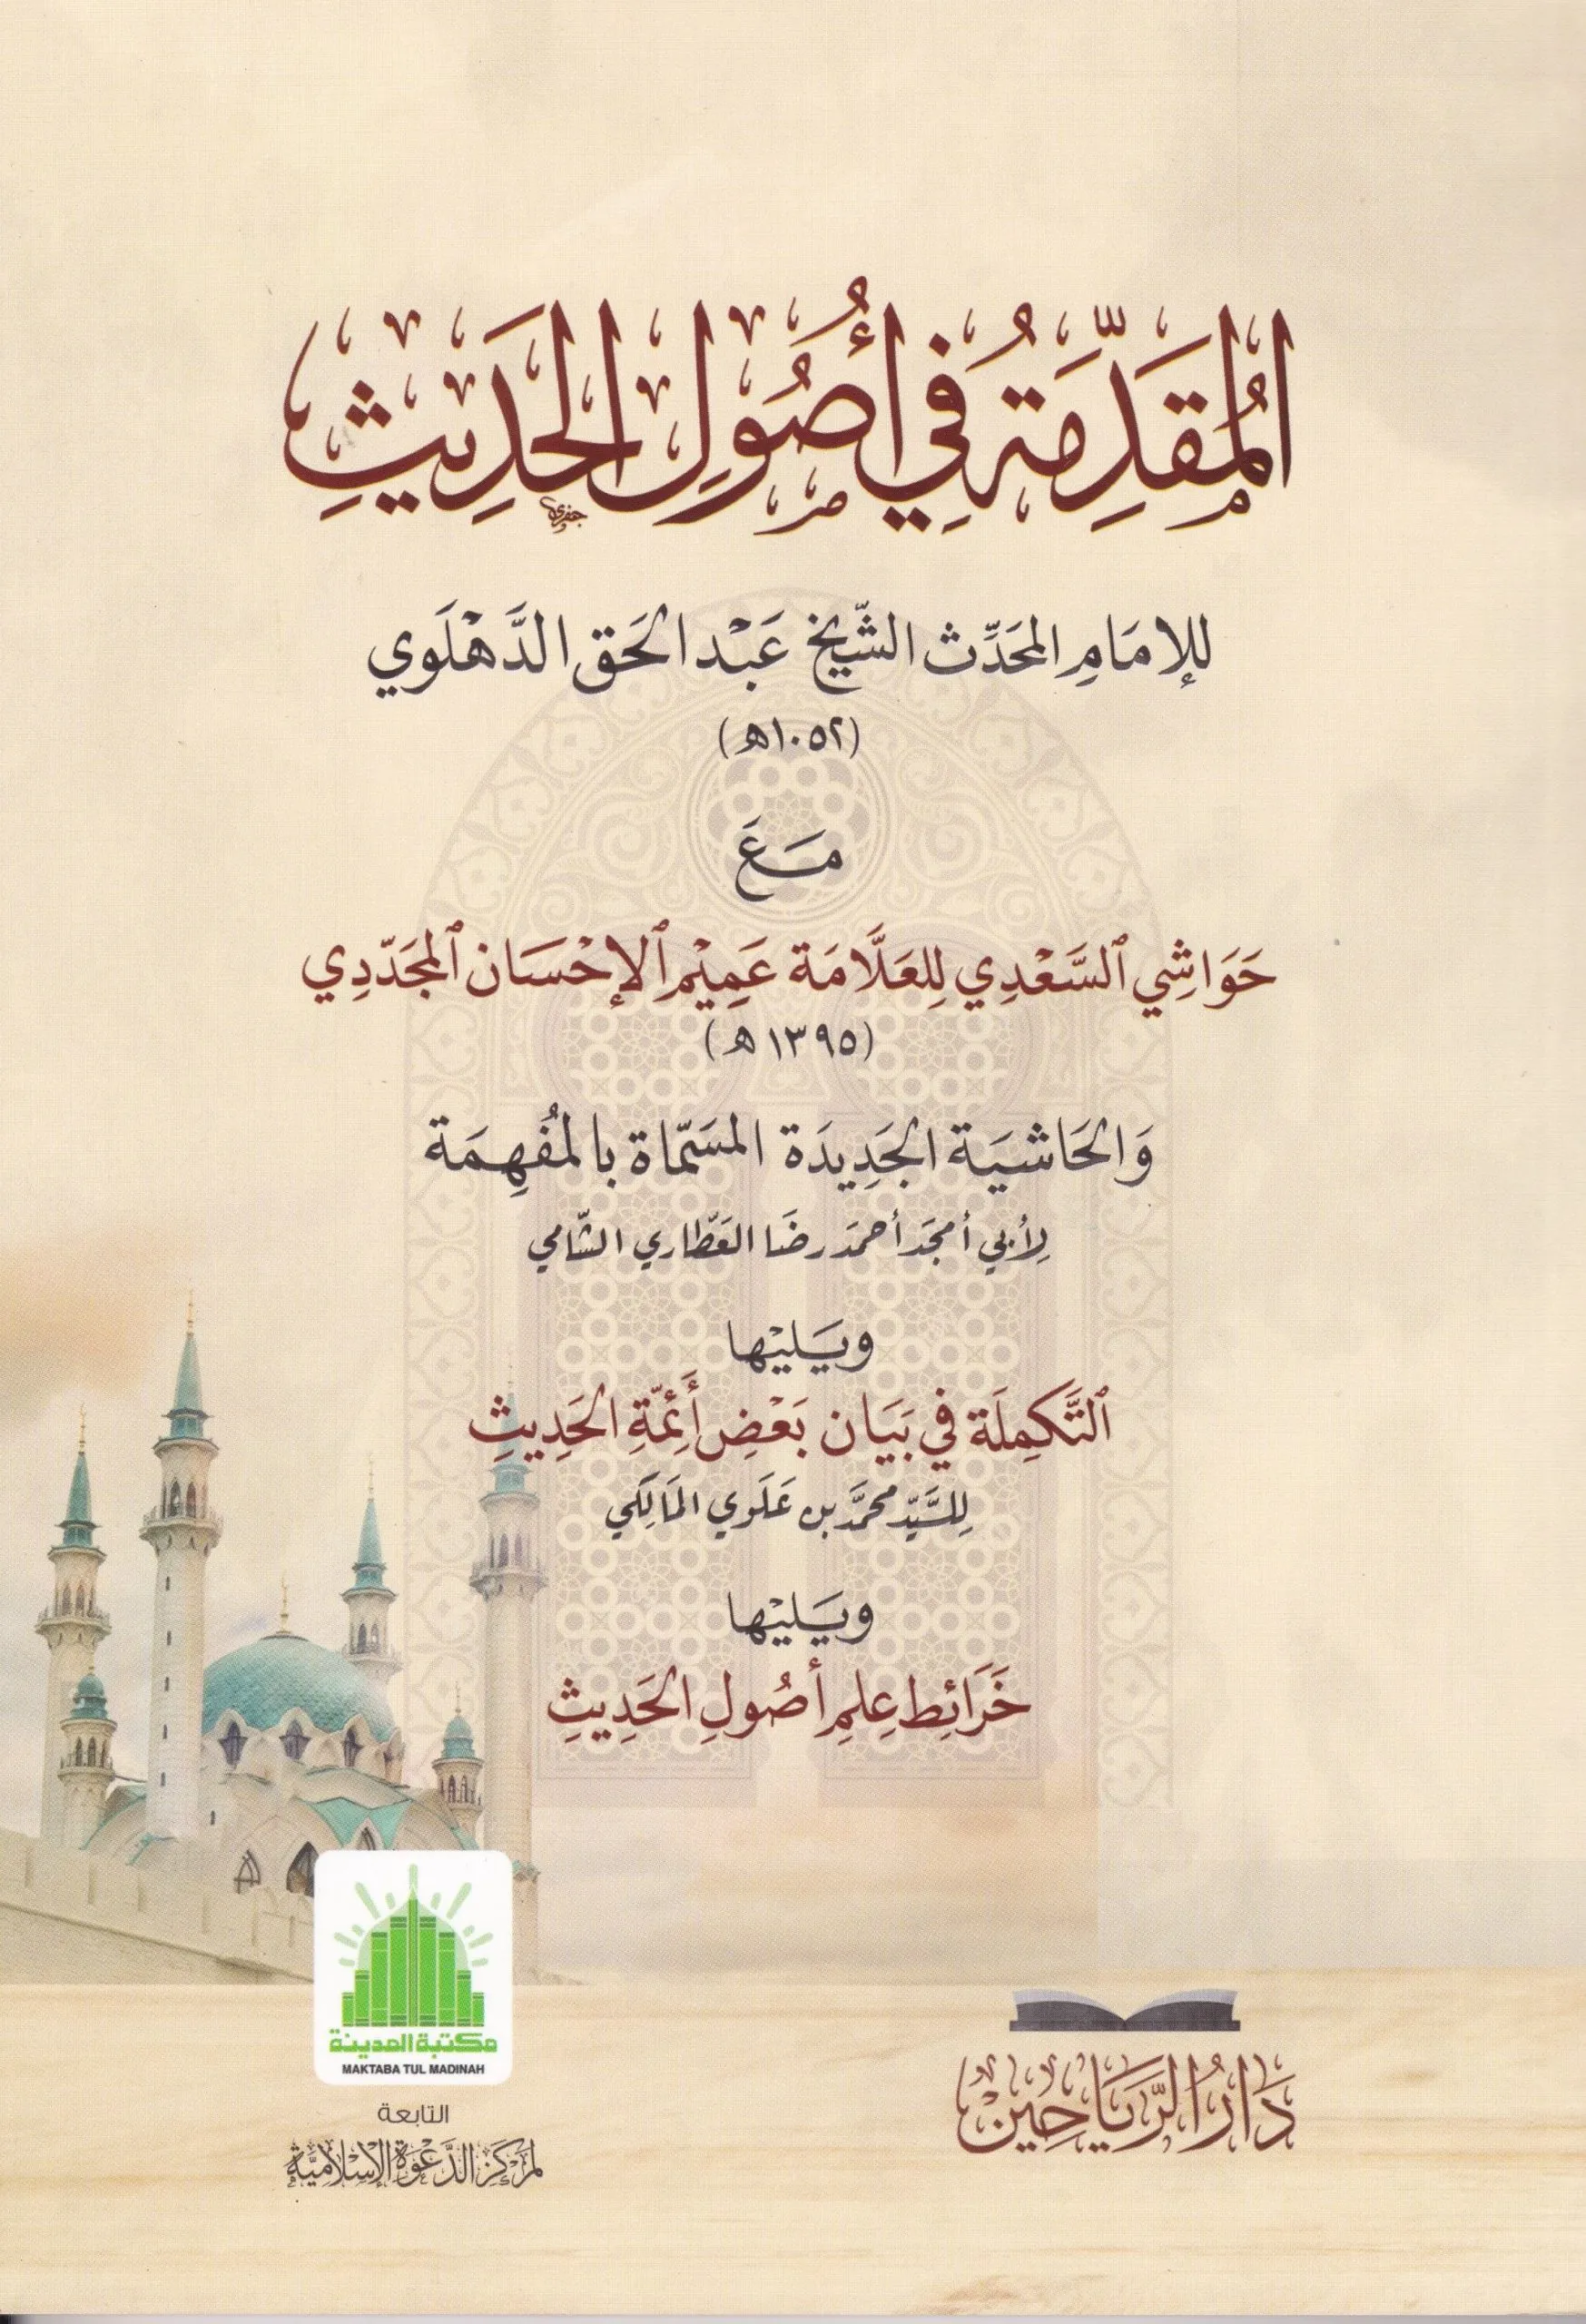 المُقَدِّمَةُ فِي أُصُولِ الحَدِيثِ
للإمَامِ المحَدِّث الشّيخ عَبْد الحَق الدَّهْلَوي
(١٠٥٢هـ)
مَعَ
حَوَاشِي ٱلسَّعْدِي لِلعَلَّامَة عَمِيْم ٱلإحْسَان ٱلمجَدّدِي
(١٣٩٥هـ)
وَالحَاشيَة الجَدِيدَة المسَمّاة بالمُفْهِمَة
لِأبي أمجَد أحمَد رضَا العَطّاري الشّامي
ويَليْها
ٱلتَّكمِلَة في بَيَان بَعْضِ أَئِمّةِ الحَدِيثِ
لِلسَّيّد محمَّد بن عَلَوي المَالِكي
ويَليْها
خَرَائِط عِلمِ أصُولِ الحَدِيثِ
مكتبة المدينة
MAKTABA TUL MADINAH
التابعة
لمَركَز الدَّعْوَة الإسْلَاميَّة
دَارُ الرَّيَاحِينْ